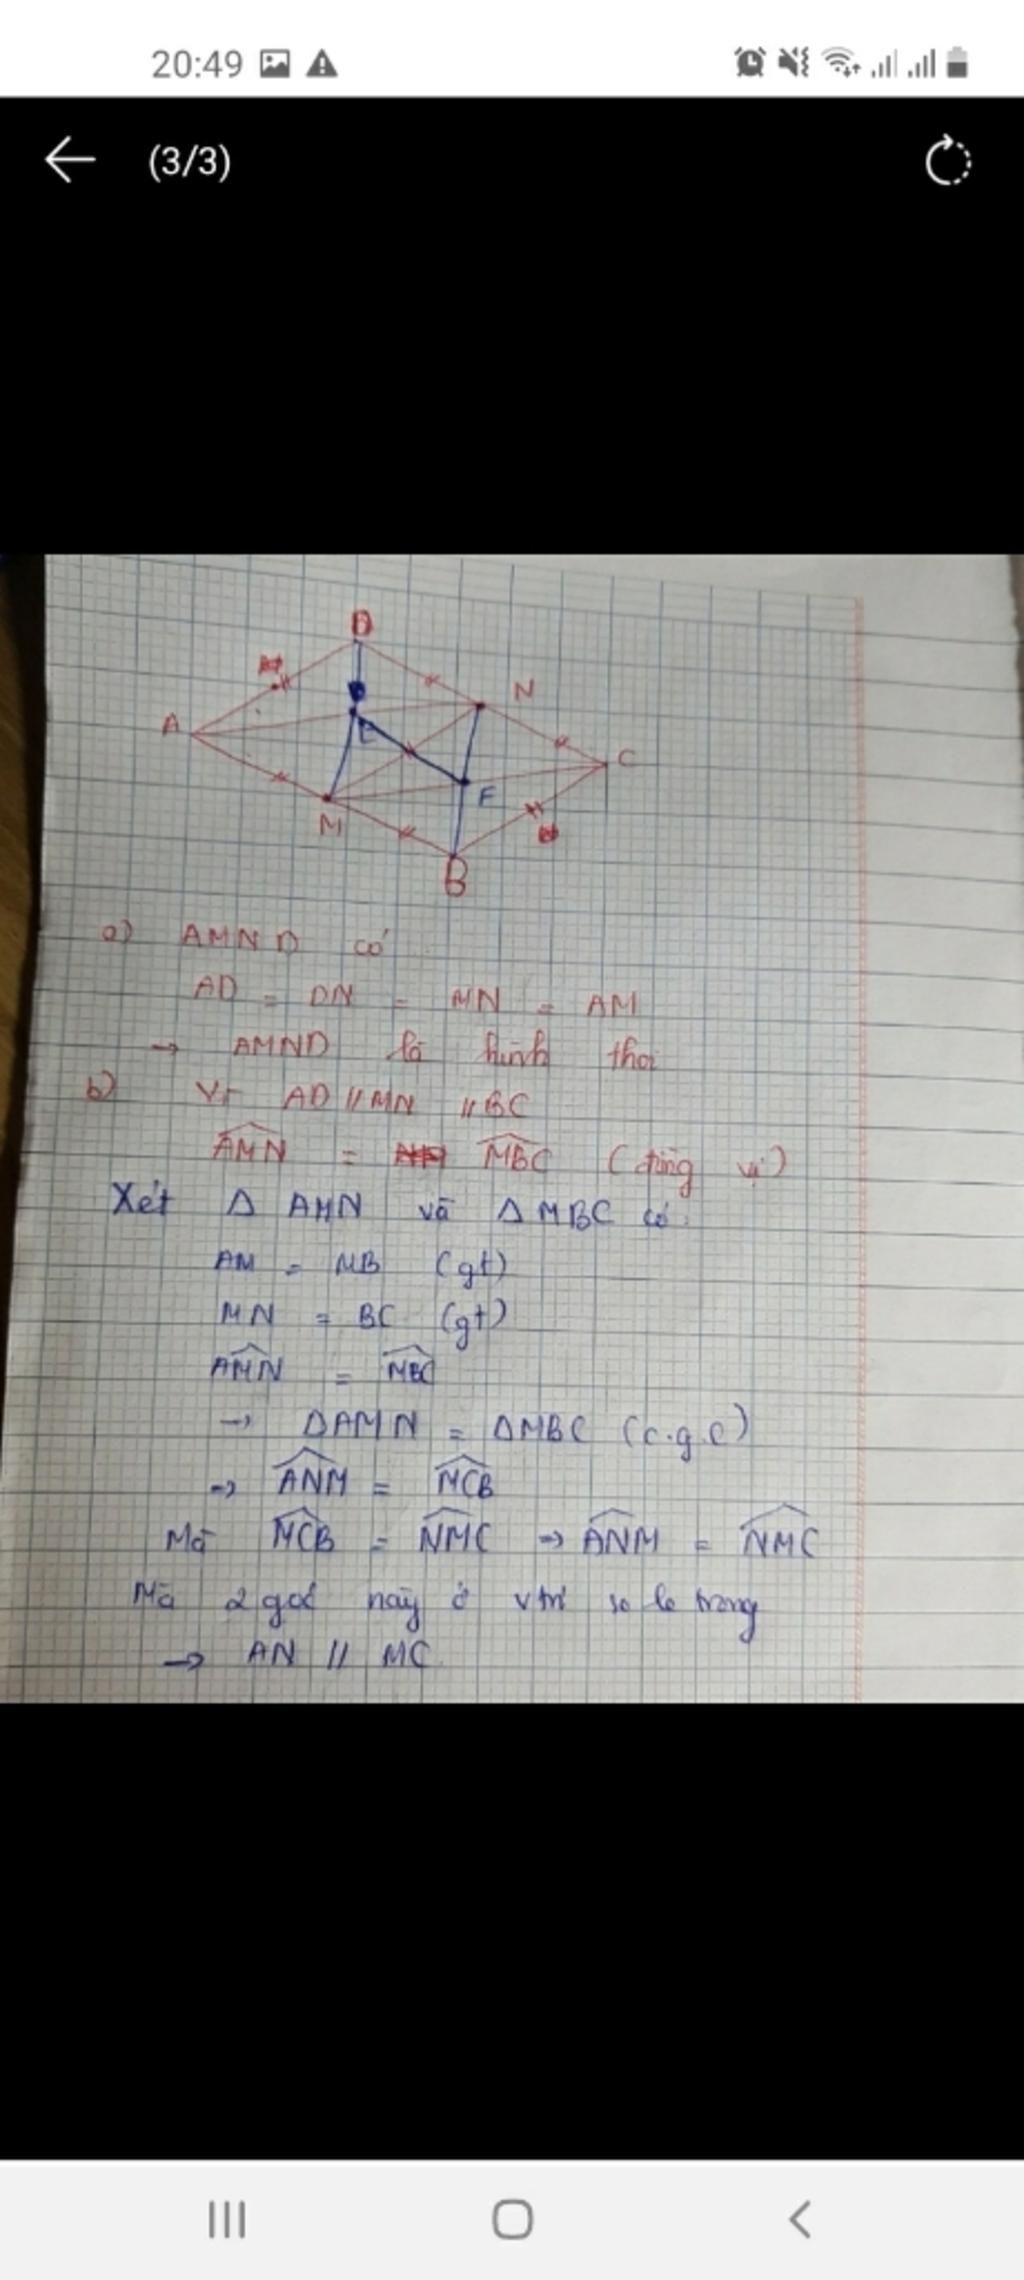 20:49
(3/3)
D
N
A
E
C
F
M
B
a) AMND có
AD = DN = MN = AM
→ AMND là hình thoi
b) Vì AD // MN // BC
AMN = MBC (đồng vị)
Xét Δ AMN và Δ MBC có:
AM = MB (gt)
MN = BC (gt)
AMN = MBC
→ ΔAMN = ΔMBC (c.g.c)
→ ANM = MCB
Mà MCB = NMC → ANM = NMC
Mà 2 góc này ở vtrí so le trong
→ AN // MC